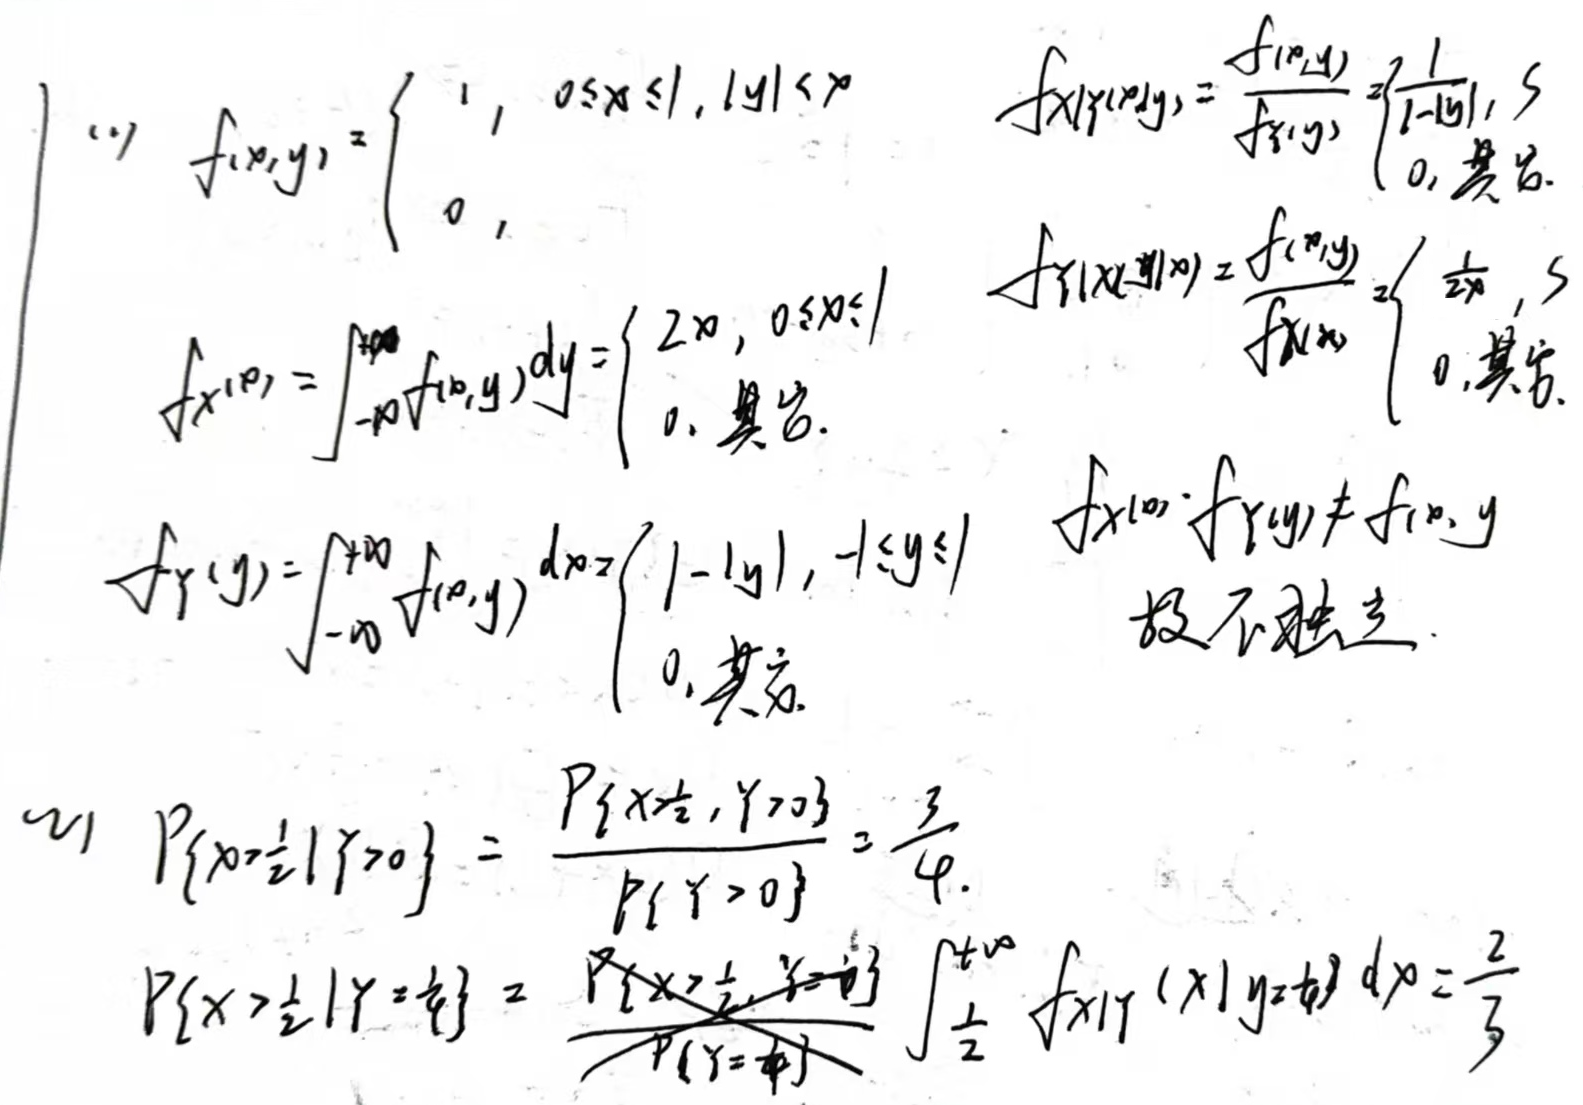 (1) f(x,y) = { 1, 0≤x≤1, |y|<x
0,
f_X(x) = ∫_{-∞}^{+∞} f(x,y) dy = { 2x, 0≤x≤1
0, 其它.
f_Y(y) = ∫_{-∞}^{+∞} f(x,y) dx = { 1-|y|, -1≤y≤1
0, 其它.
f_{X|Y}(x|y) = f(x,y)/f_Y(y) = { 1/(1-|y|), S
0, 其它.
f_{Y|X}(y|x) = f(x,y)/f_X(x) = { 1/2x, S
0, 其它.
f_X(x)·f_Y(y) ≠ f(x,y
故不独立.
(2) P{X>1/2|Y>0} = P{X>1/2, Y>0}/P{Y>0} = 3/4.
P{X>1/2|Y=1/4} = P{X>1/2, Y=1/4}/P{Y=1/4} ∫_{1/2}^{+∞} f_{X|Y}(x|y=1/4) dx = 2/3